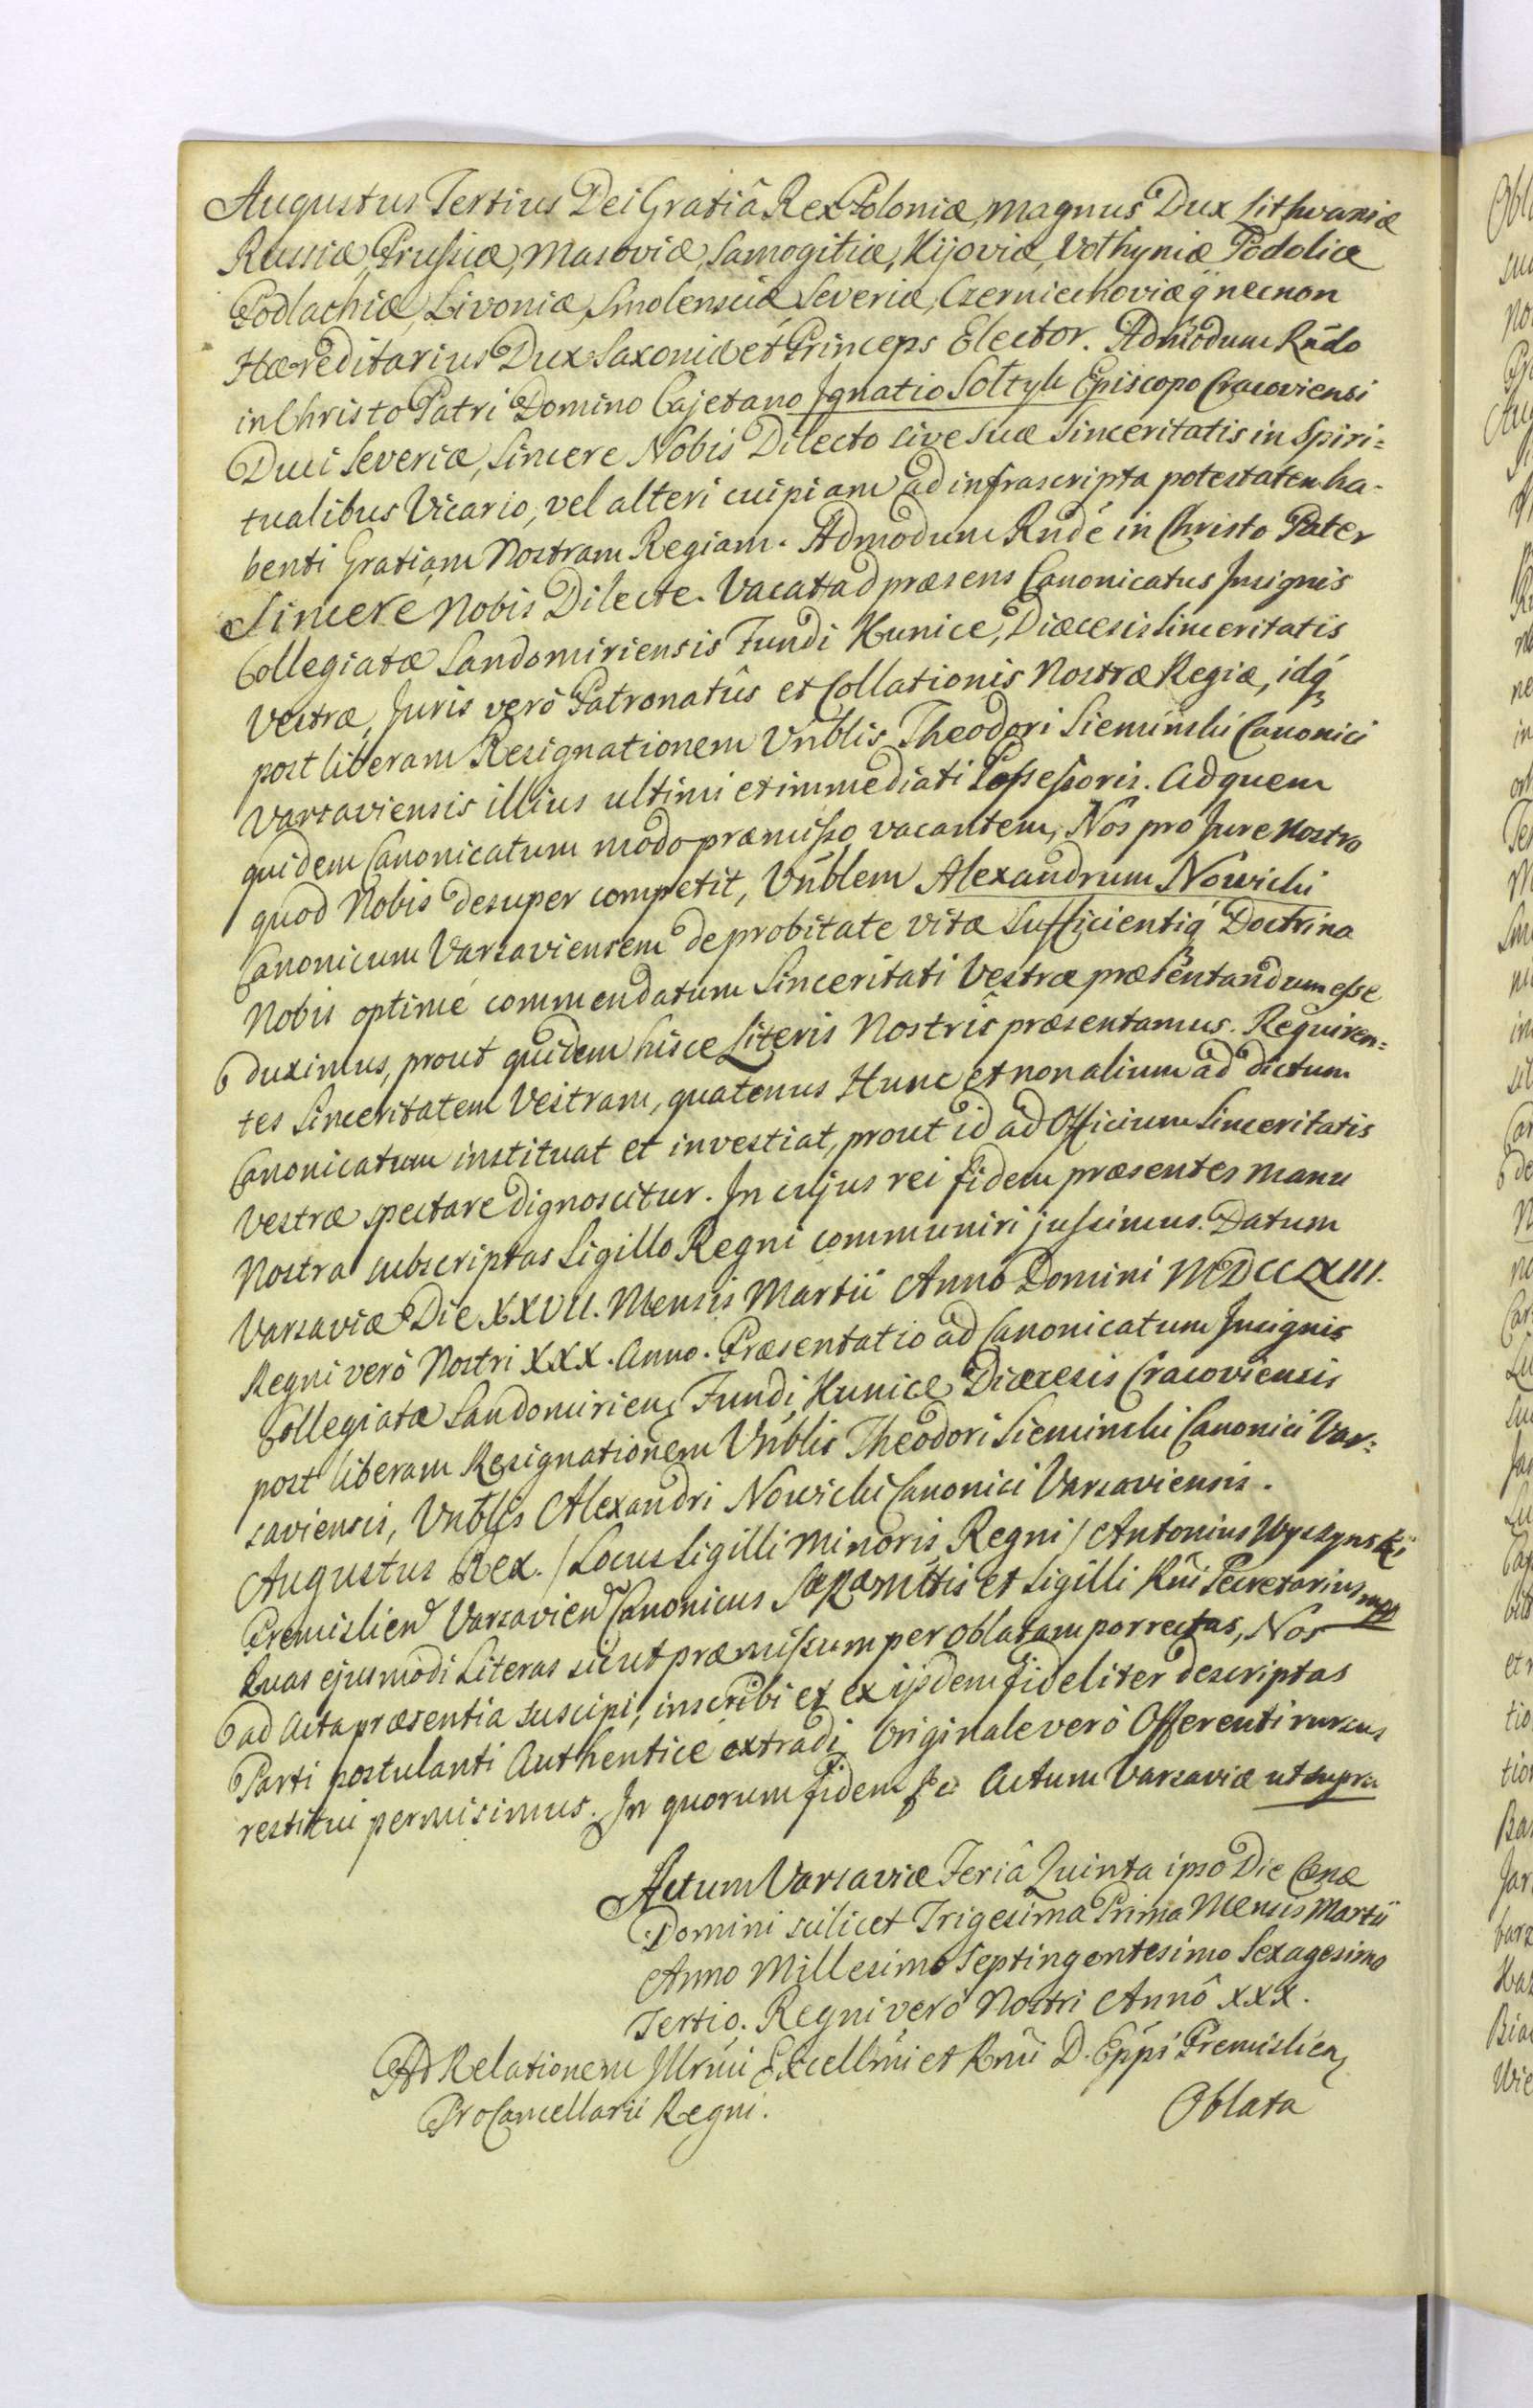 Augustus Tertius Dei Gratiâ Rex Poloniæ, Magnus Dux Lithvaniæ
Russiæ, Prussiæ, Masoviæ, Samogitiæ, Kijoviæ, Volhyniæ Podoliæ
Podlachiæ, Livoniæ, Smolensciæ, Severiæ, Czerniechoviæq̃ necnon
Hæreditarius Dux Saxoniæ et Princeps Elector. Admodum Rñdo
in Christo Patri Domino Cajetano Ignatio Sołtyk Episcopo Cracoviensi
Duci Severiæ, Sincere Nobis Dilecto sive Suæ Sinceritatis in Spiri:
tualibus Vicario, vel alteri cuipiam ad infrascripta potestatem ha-
benti Gratiam Nostram Regiam. Admodum Rnde in Christo Pater
Sincere Nobis Dilecte. Vacat ad præsens Canonicatus Insignis
Collegiatæ Sandomiriensis Fundi Kunice, Diæcesis Sinceritatis
Vestræ, Juris verò Patronatûs et Collationis Nostræ Regiæ, idq́
post liberam Resignationem Vñblis Theodori Siemiński Canonici
Varsaviensis illius ultimi et immediati Possessoris. Ad quem
quidem Canonicatum modo præmisso vacantem, Nos pro Jure Nostro
quod Nobis desuper competit, Vñblem Alexandrum Nowicki
Canonicum Varsaviensem de probitate vitæ Sufficientiq́ Doctrina
Nobis optimé commendatum Sinceritati Vestræ præsentandum esse
duximus, prout quidem hisce Literis Nostris præsentamus. Requiren:
tes Sinceritatem Vestram, quatenus Hunc et non alium ad dictum
Canonicatum instituat et investiat, prout id ad Officium Sinceritatis
Vestræ spectare dignoscitur. In cujus rei fidem præsentes manu
Nostra subscriptas Sigillo Regni communiri jussimus. Datum
Varsaviæ Die XXVII. Mensis Martii Anno Domini MDCCLXIII.
Regni verò Nostri XXX. Anno. Præsentatio ad Canonicatum Insignis
Collegiatæ Sandomirien, Fundi Kunice Diæcesis Cracoviensis
post liberam Resignationem Vñblis Theodori Siemiński Canonici Var:
saviensis, Vñblis Alexandri Nowicki Canonici Varsaviensis.
Augustus Rex. / Locus Sigilli Minoris Regni / Antonius Wyszynski
Premislien Varsavien Canonicus Sæ Ræ Mttis et Sigilli Rñi Secretarius mpp
Quas ejusmodi Literas sicut præmissum per oblatam porrectas, Nos
ad Acta præsentia suscipi, inscribi et ex ijsdem fideliter descriptas
Parti postulanti Authenticè extradi, Originale verò Offerenti rursus
restitui permisimus. In quorum fidem &c Actum Varsaviæ ut supra
Actum Varsaviæ Feriâ Quinta ipso Die Cœnæ
Domini scilicet Trigesima Prima Mensis Martii
Anno Millesimo Septingentesimo Sexagesimo
Tertio. Regni verò Nostri Annô XXX.
Ad Relationem Illrmi Excellmi et Rmi D. Eppi Premislien,
ProCancellarii Regni.
Oblata